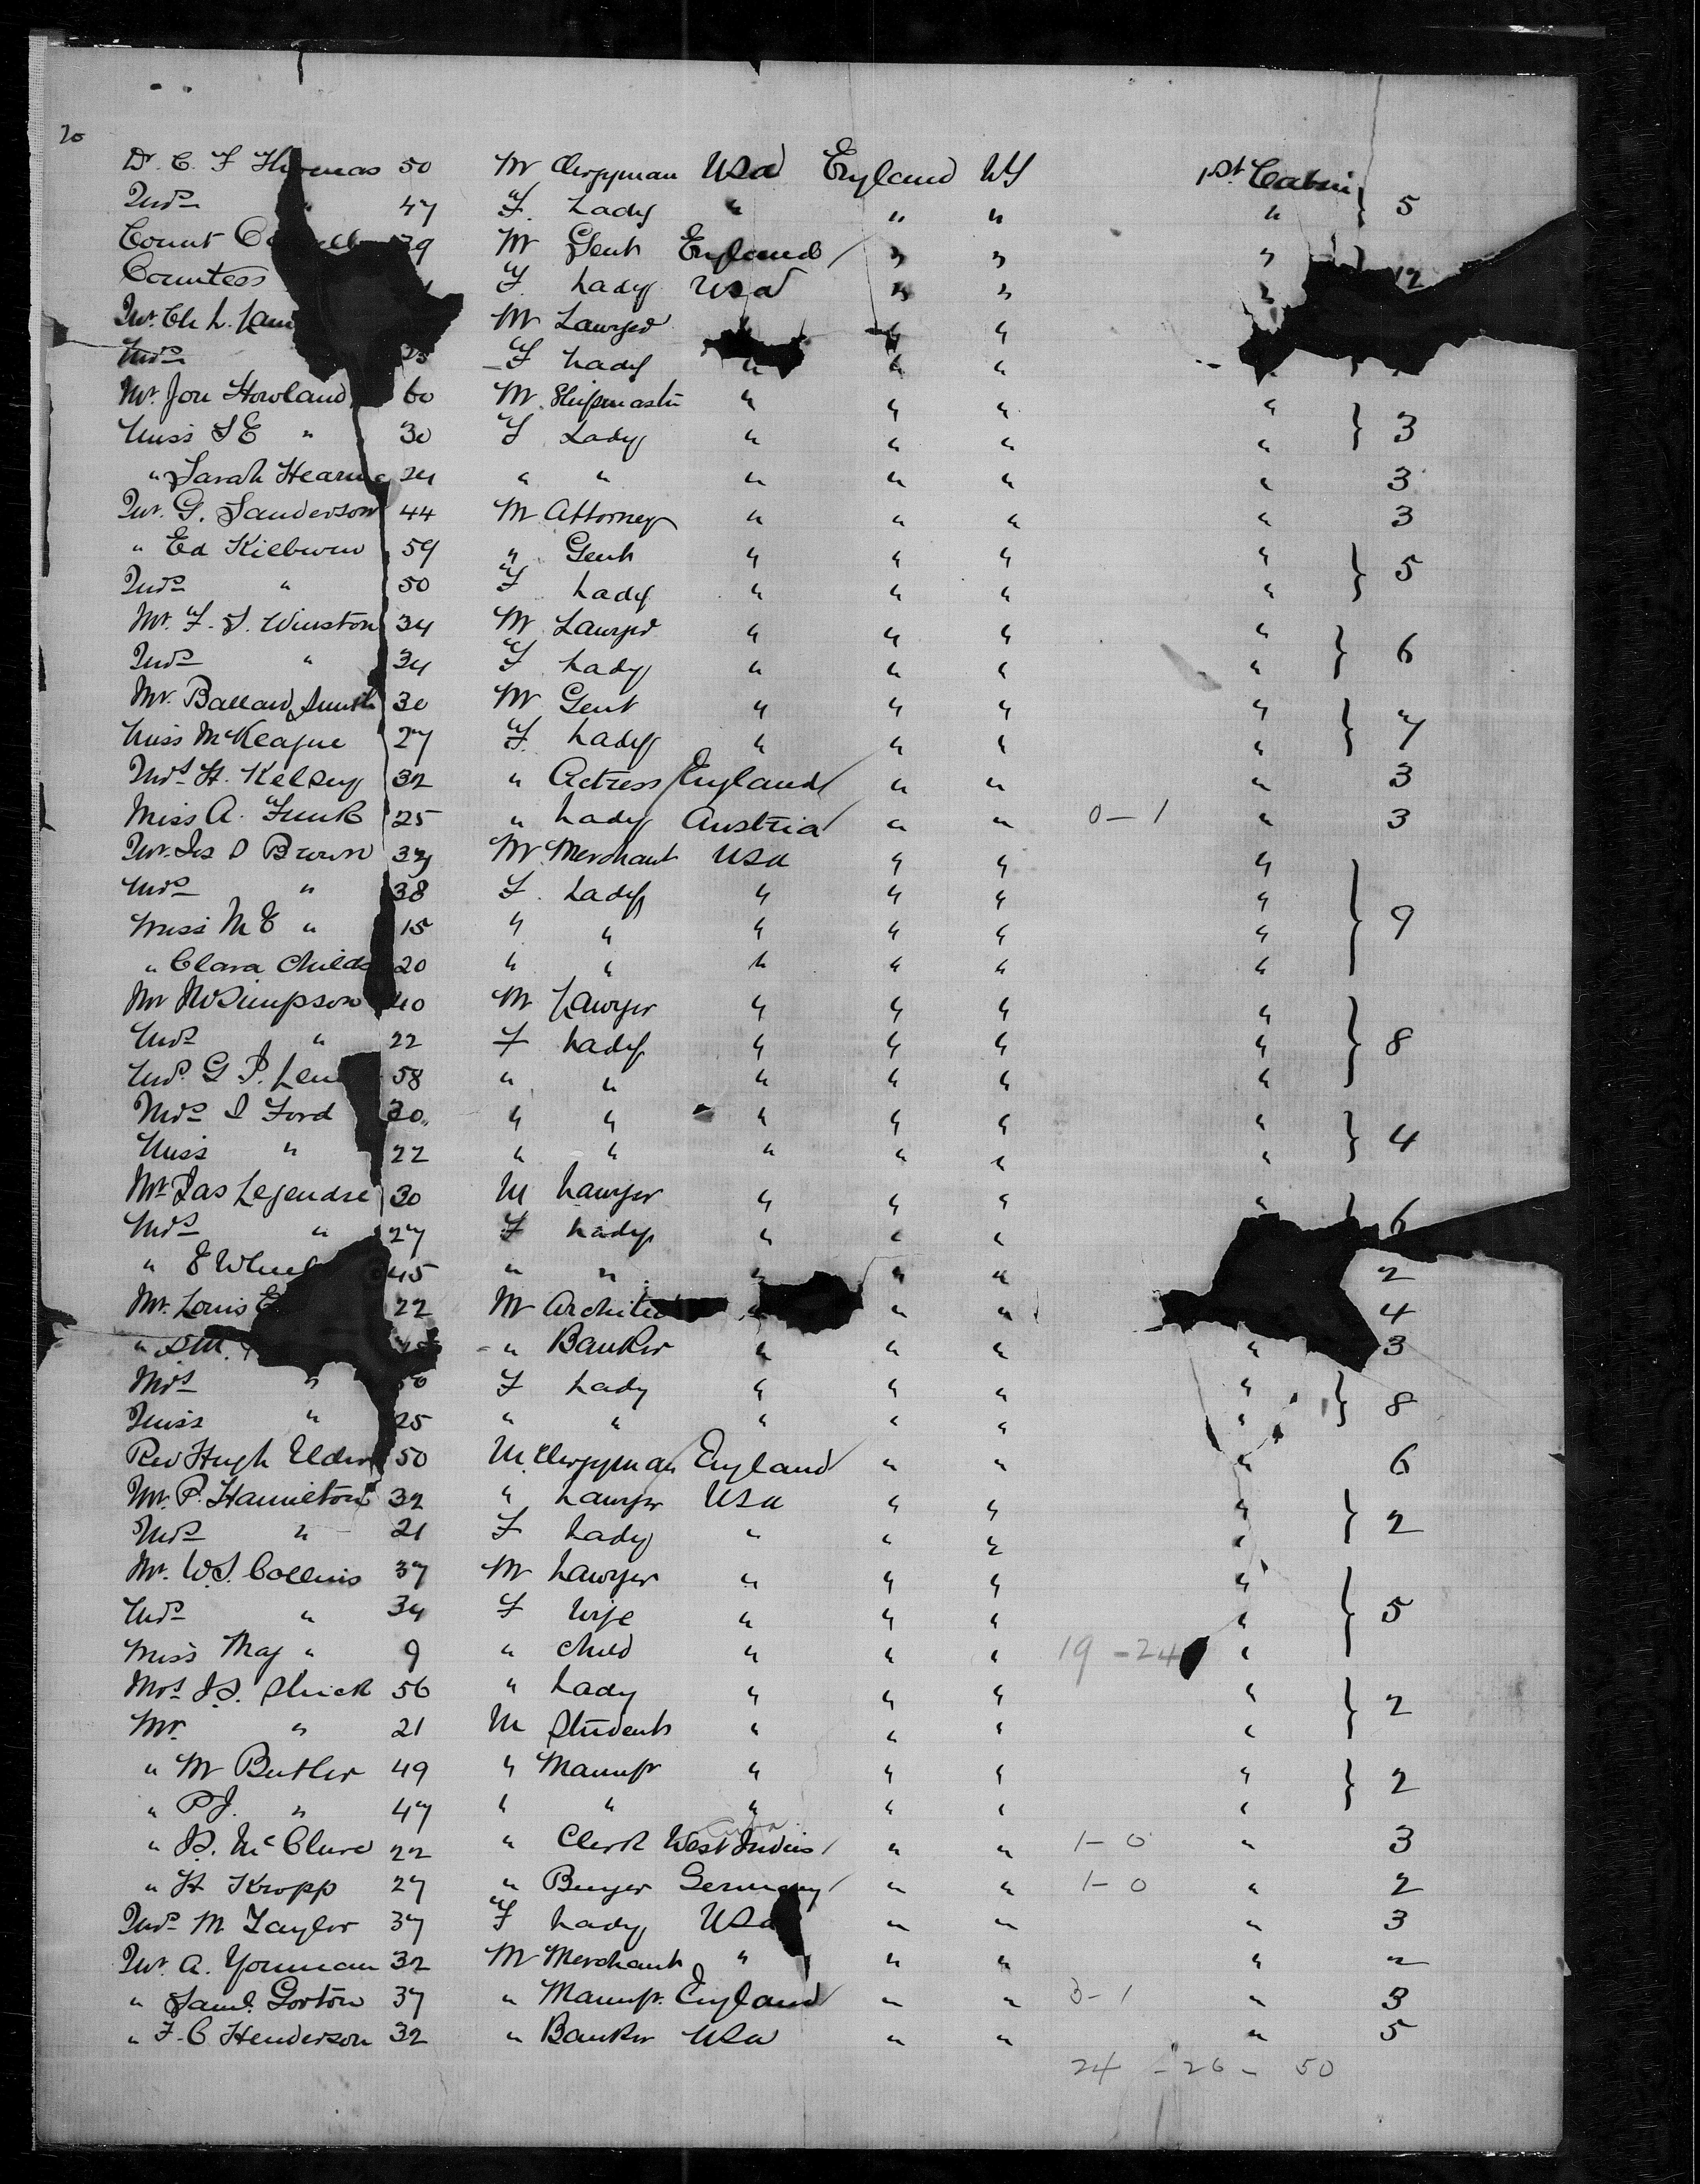 20
Dr. C. F Thomas 50 M Clergyman USA England US 1st Cabin 5
Mrs " 47 F. Lady " " " "
Count M Gent England " " " 12
Countess F. Lady USA " " "
Mr. Ch L. M Lawyer " "
Mrs F Lady " " " "
Mr. Jon Howland 60 M. Shipmaster " " " " 3
Miss S E " 30 F Lady " " " "
" Sarah 24 " " " " " " 3
Mr. G. Sanderson 44 M Attorney " " " " 3
" Ed 59 " Gent " " " " 5
Mrs " 50 F Lady " " " "
Mr. F. S. Winston 34 M Lawyer " " " " 6
Mrs " 34 F Lady " " " "
Mr. Ballard Smith 30 M Gent " " " " 7
Miss McKeague 27 F. Lady " " " "
Mrs H. Kelsey 32 " Actress England " " " 3
Miss A. Funk 25 " Lady Austria " " 0-1 " 3
Mr. Jas S Brown M Merchant USA " " " 9
Mrs " 38 F. Lady " " " "
Miss M E " 15 " " " " " "
" Clara Childs 20 " " " " " "
Mr Simpson 40 M Lawyer " " " " 8
Mrs " 22 F Lady " " " "
Mrs. G P. 58 " " " " " "
Mrs S Ford 30 " " " " " " 4
Miss " 22 " " " " " "
Mr Jas Legendre 30 M Lawyer " " " " 6
Mrs " 27 F Lady " " "
" E 45 " " " " " 2
Mr. Louis 22 M " " " 4
" S M. " Banker " " " " 3
Mrs " 50 F Lady " " " " 8
Miss " 25 " " " " " "
Rev Hugh Elder 50 M. Clergyman England " " " 6
Mr. P. Hamilton 32 " Lawyer USA " " " 2
Mrs " 21 F Lady " " " "
Mr. W. S. Collins 37 M Lawyer " " " " 5
Mrs " 34 F Wife " " " "
Miss May " 9 " Child " " " 19-24 "
Mrs J. S. Shick 56 " Lady " " " " 2
Mr. " 21 M Student " " " "
" M Butler 49 " Manufr " " " " 2
" P J. " 47 " " " " " "
" McClure 22 " Clerk West Indies " " 1-0 " 3
" H Kropp 27 " Buyer Germany " " 1-0 " 2
Mrs M Taylor 37 F Lady USA " " " 3
Mr. A. Youmean 32 M Merchant " " " " 2
" Saml. Gorton 37 " Manufr. England " " 3-1 " 3
" F. C Henderson 32 " Banker USA " " " 5
24 - 26 - 50